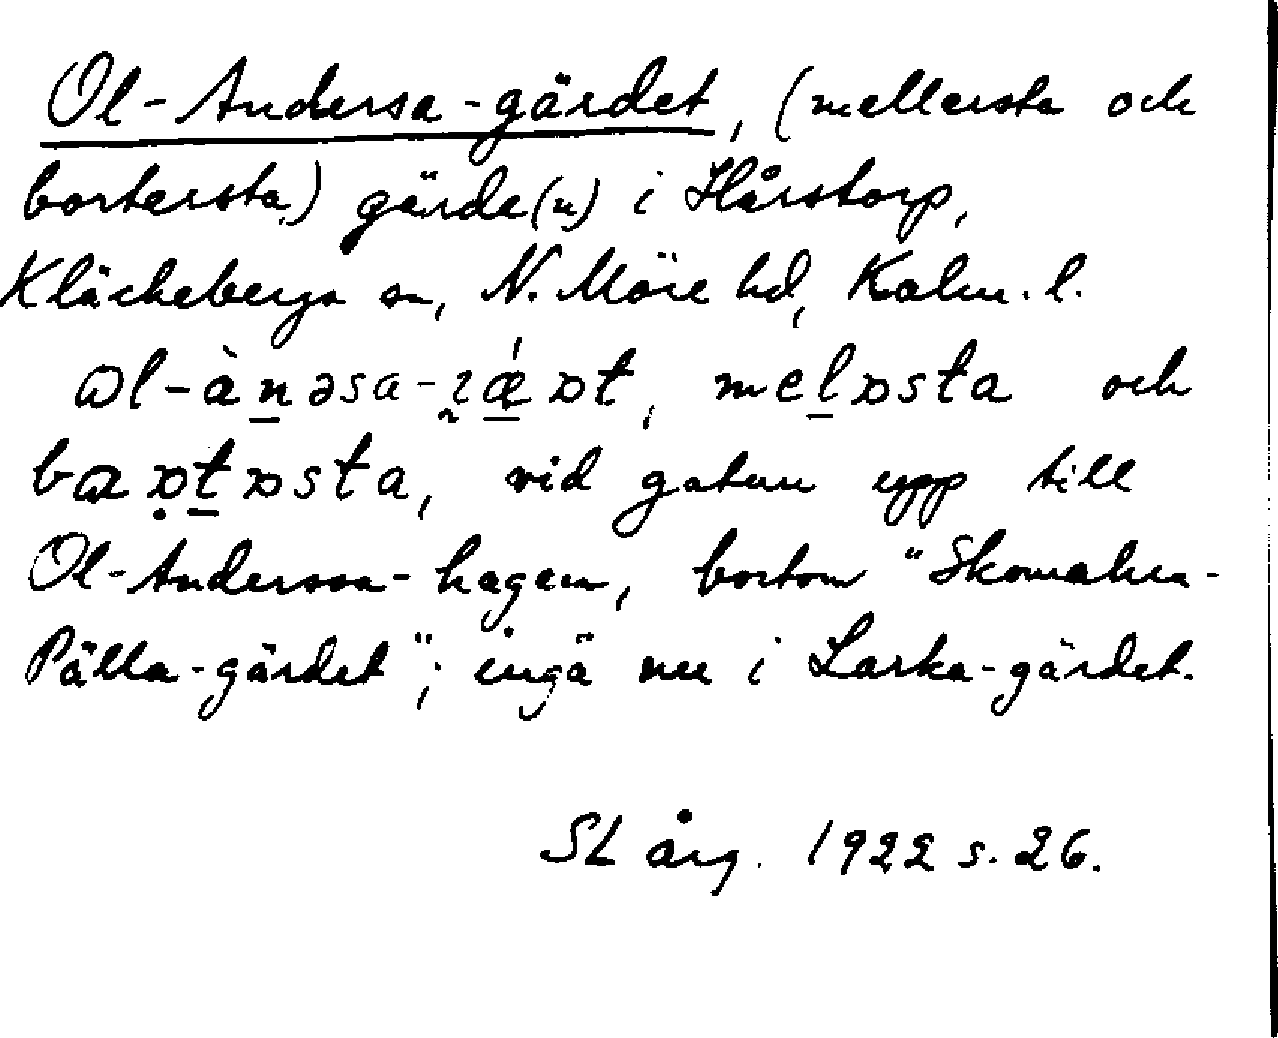 Ol-Andersa-gärdet, (mellersta och
bortersta) gärde(n) i Hårstorp,
Kläckeberga sn, N. Möre hd, Kalm. l.
ol-àn̲əsa- ɒt, mel̲ɒsta och
baɒ̣t̲ɒsta, vid gatan upp till
Ol-Anderssa-hagen, bortom "Skomakra-
Pälla-gärdet"; ingå nu i Larka-gärdet.
SL årg. 1922 s. 26.